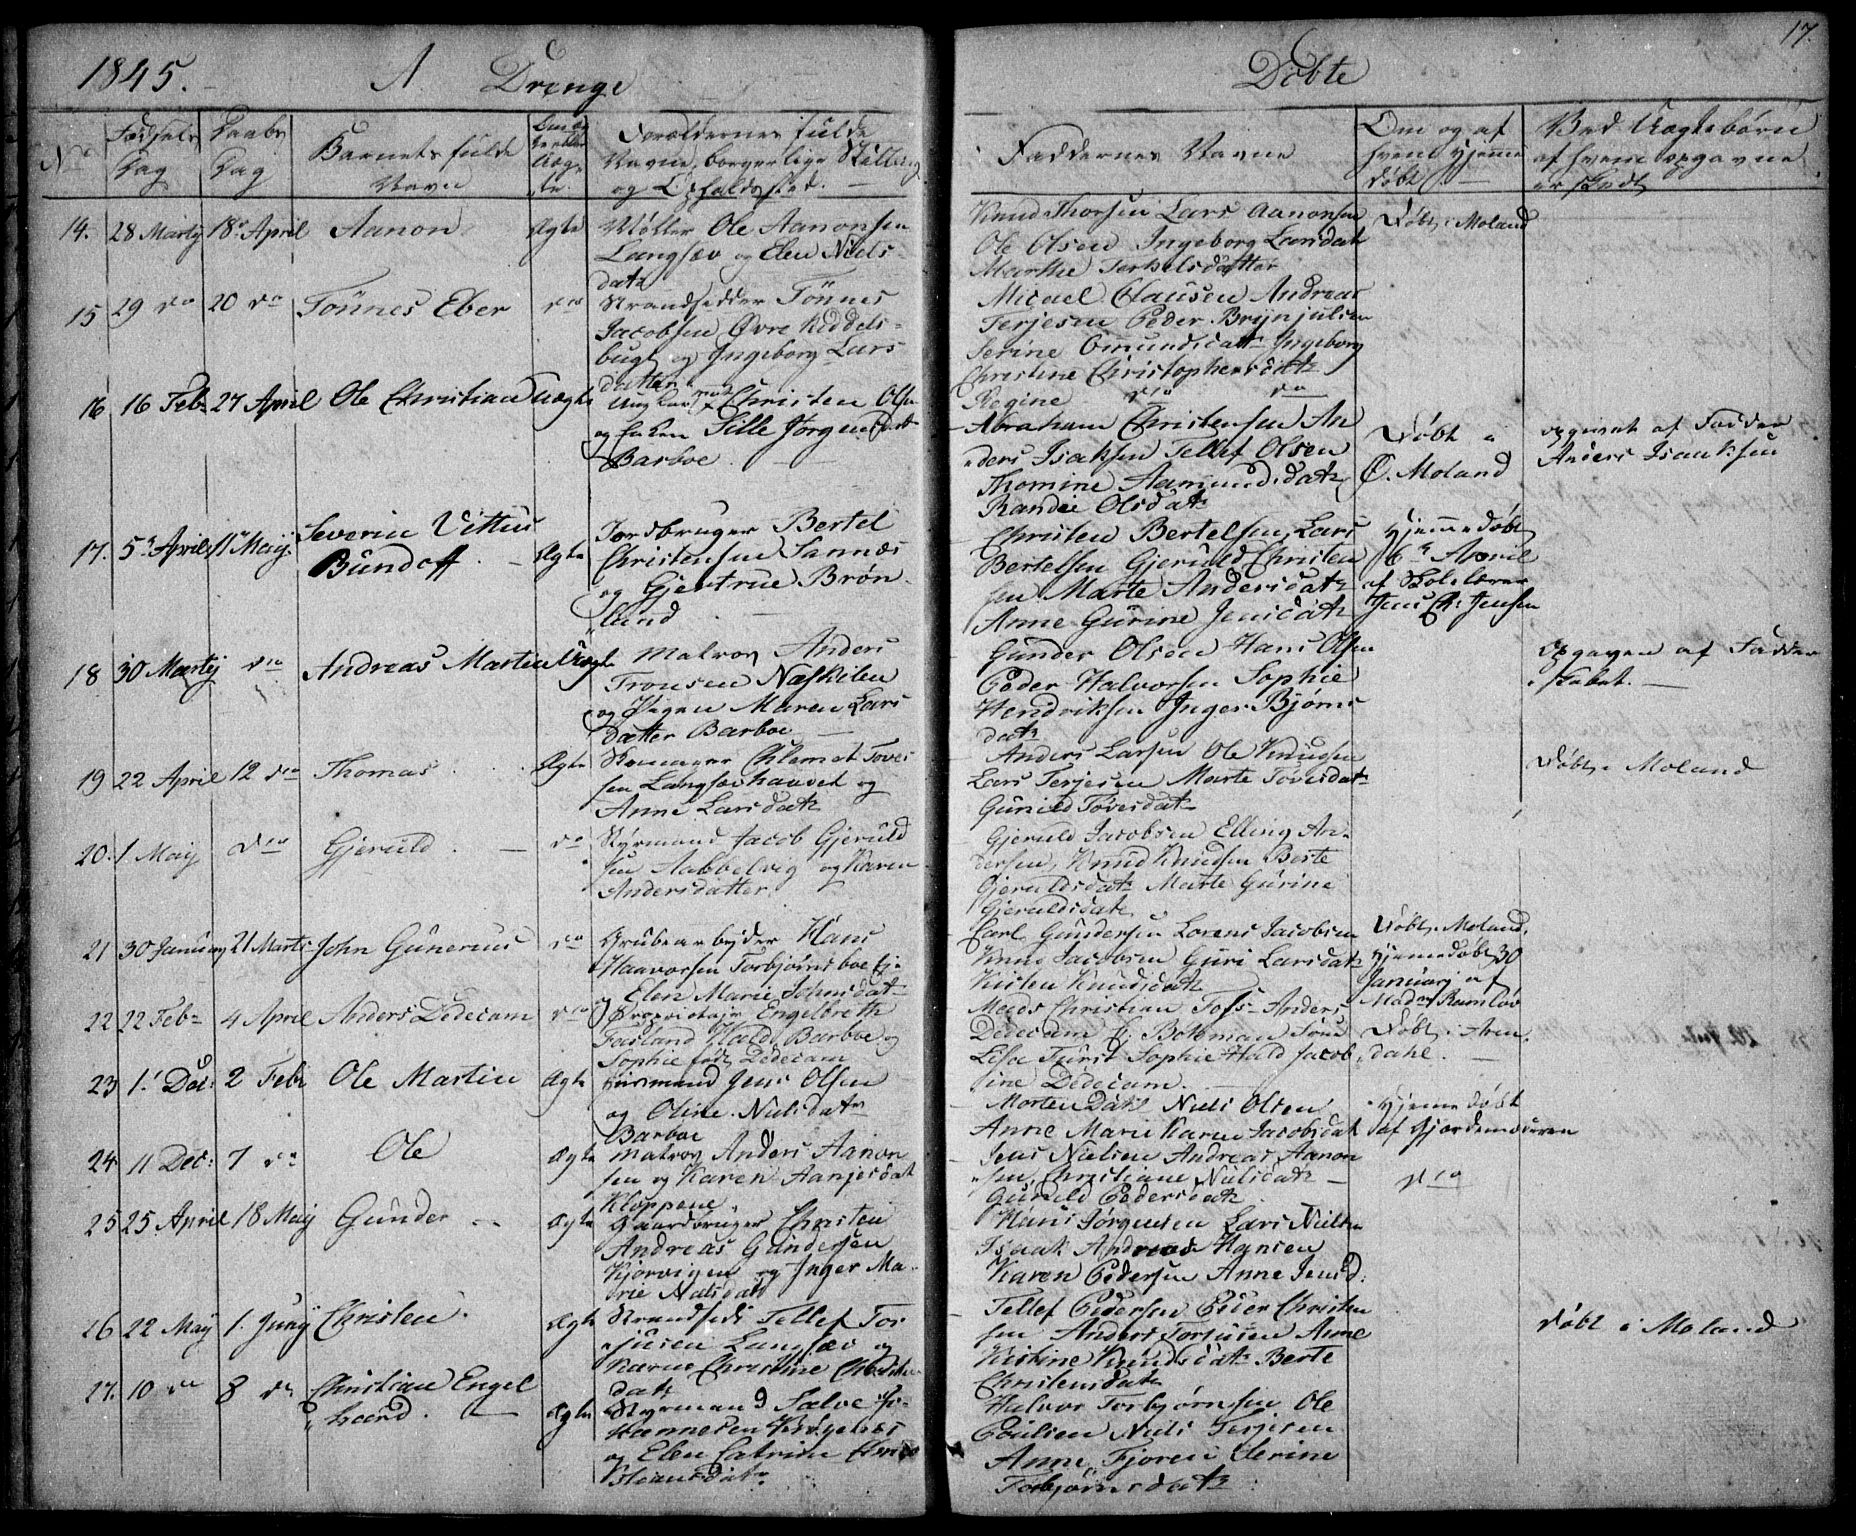 17.
1845.
A Drenge
Døbte
No
Fødsels Dag
Daabs Dag
Barnets fulde Navn
Forældrenes fulde Navne, borgerlige Stilling og Opholdssted.
Faddernes Navne
Om og af hvem hjemmedøbt.
Ved Uægtebørn af hvem opgavne er skedt
14. 28 Martij 18de April Aanon Ægte
Møller Ole Aanonsen
Langsæv og Elen Niels
datr
Knud Thorsen Lars Aanonsen
Ole Olsen Ingeborg Larsdatr
Marthe Terkelsdatter
Døbt i Moland
15 29 do 20 do Tönnes Eber do
Strandsidder Tönnes
Jacobsen Øvre Kiddels-
bugt og Ingeborg Lars
datter
Micael Hansen Andreas
Terjesen Peder Brynjulsen
Serine Omundsdatr Ingeborg
Christine Christophersdatr
Regine do do
16 16 Feb. 27 April Ole Christian Uægte
Ungkarl Christen Olsen
og Enken Sille Jørgensdatr
Barboe.
Abraham Christensen An
ders Isaksen Tellef Olsen
Thomine Aamundsdatr
Randie Olsdatr
Døbt i
Ø. Moland
opgivet af Fadder
Anders Isaaksen
17. 5te April 11te Maij Severin Vittus
Bundoff. Ægte
Jordbruger Bertel
Christensen Sannæs
og Gjertrue Brøn
lund
Christen Bertelsen, Lars
Bertelsen Gjeruld Christen
sen Marte Andersdatr
Anne Gurine Jensdatr
Hjemmedøbt
6te April
af Skolelærer
Jens Chr. Jensen
18 30 Martij do Andreas Martin Uægte
Matros Anders
Tronsen Næskilen
og Pigen Maren Lars
datter Barboe
Gunder Olsen Hans Olsen
Peder Halvorsen Sophie
Hendriksen Inger Bjørns
datr
Opgaven af Fadder
skabet.
19 22 April 12 do Thomas Ægte
Klemet Toves
sen Langsæehaavet og
Anne Larsdatr
Anders Larsen Ole Knudsen
Lars Terjesen Marte Tovesdatr
Gunild Tovesdatr
Døbt i Moland
20. 1 Maij do Gjeruld do
Styrmand Jacob Gjeruld
sen Aabbelvig og Karen
Andersdatter
Gjeruld Jacobsen Elling An-
dersen, Knud Knudsen Berte
Gjeruldsdatr Marte Gurine
Gjeruldsdatr
21 30 January 21 Marts John Gunerius do
Grubearbejder Hans
Haavorsen Torbjørnsboe Ej-
og Elen Marie Johnsdatr
Carl Gundersen Lorens Jacobsen
Knud Jacobsen Guri Larsdatr
Kisten Knudsdatr
Døbt i Moland.
hjemmedøbt 30
Januarij af
Madm Ramløv
22 22 Feb. 4 April Anders Dedecam do
Proprietair Engelbreth
Hald Barboe og
Sophie fød Dedecam
Mads Christian Anders
Dedecam Botoman
Lise Sophie Hald Jacob
ine Dedecam.
Døbt i Aren
dahl.
23 1. Dec: 2 Febr Ole Martin Ægte
Jens Olsen
og Oline Nielsdatr
Barboe
Morten Niels Olsen
Anne Marie Karen Jacobsdatr
Hjemmedøbt
af Gjordemoderen
24 11 Dec: 7 do Ole Ægte
Matros Anders Aanon
sen og Karen Aanjesdatr
Kloppene.
Jens Nielsen Andreas Aanon
sen, Christiane Nielsdatr
Gunild Pedersdatr
do
25 25 April 18 Maij Gunder Ægte
Gaardbruger Christen
Andreas Gundersen
Kjorvigen og Inger Ma-
rie Nielsdatr
Hans Jørgensen Lars Nielsen
Isaak Andreas Hansen
Karen Pedersen Anne Jensd:
26 22 Maij 1. Junij Christen. Ægte
Strandsid Tellef Tor
jusen Langsæv og
Karne Christine Christens
datr
Tellef Pedersen Peder Christen
sen Anders Torjusen Anne
Kistine Knudsdatr Berte
Christensdatr
Døbt i Moland
27. 10 do 8 do Christian Engel
haard. Ægte
Styrmand Salve Jo-
hannesen
og Elen Catrine
datr
Halvor Torbjørnsen Ole
Poulsen Niels Terjesen
Anne Serine
Torbjørnsdatr